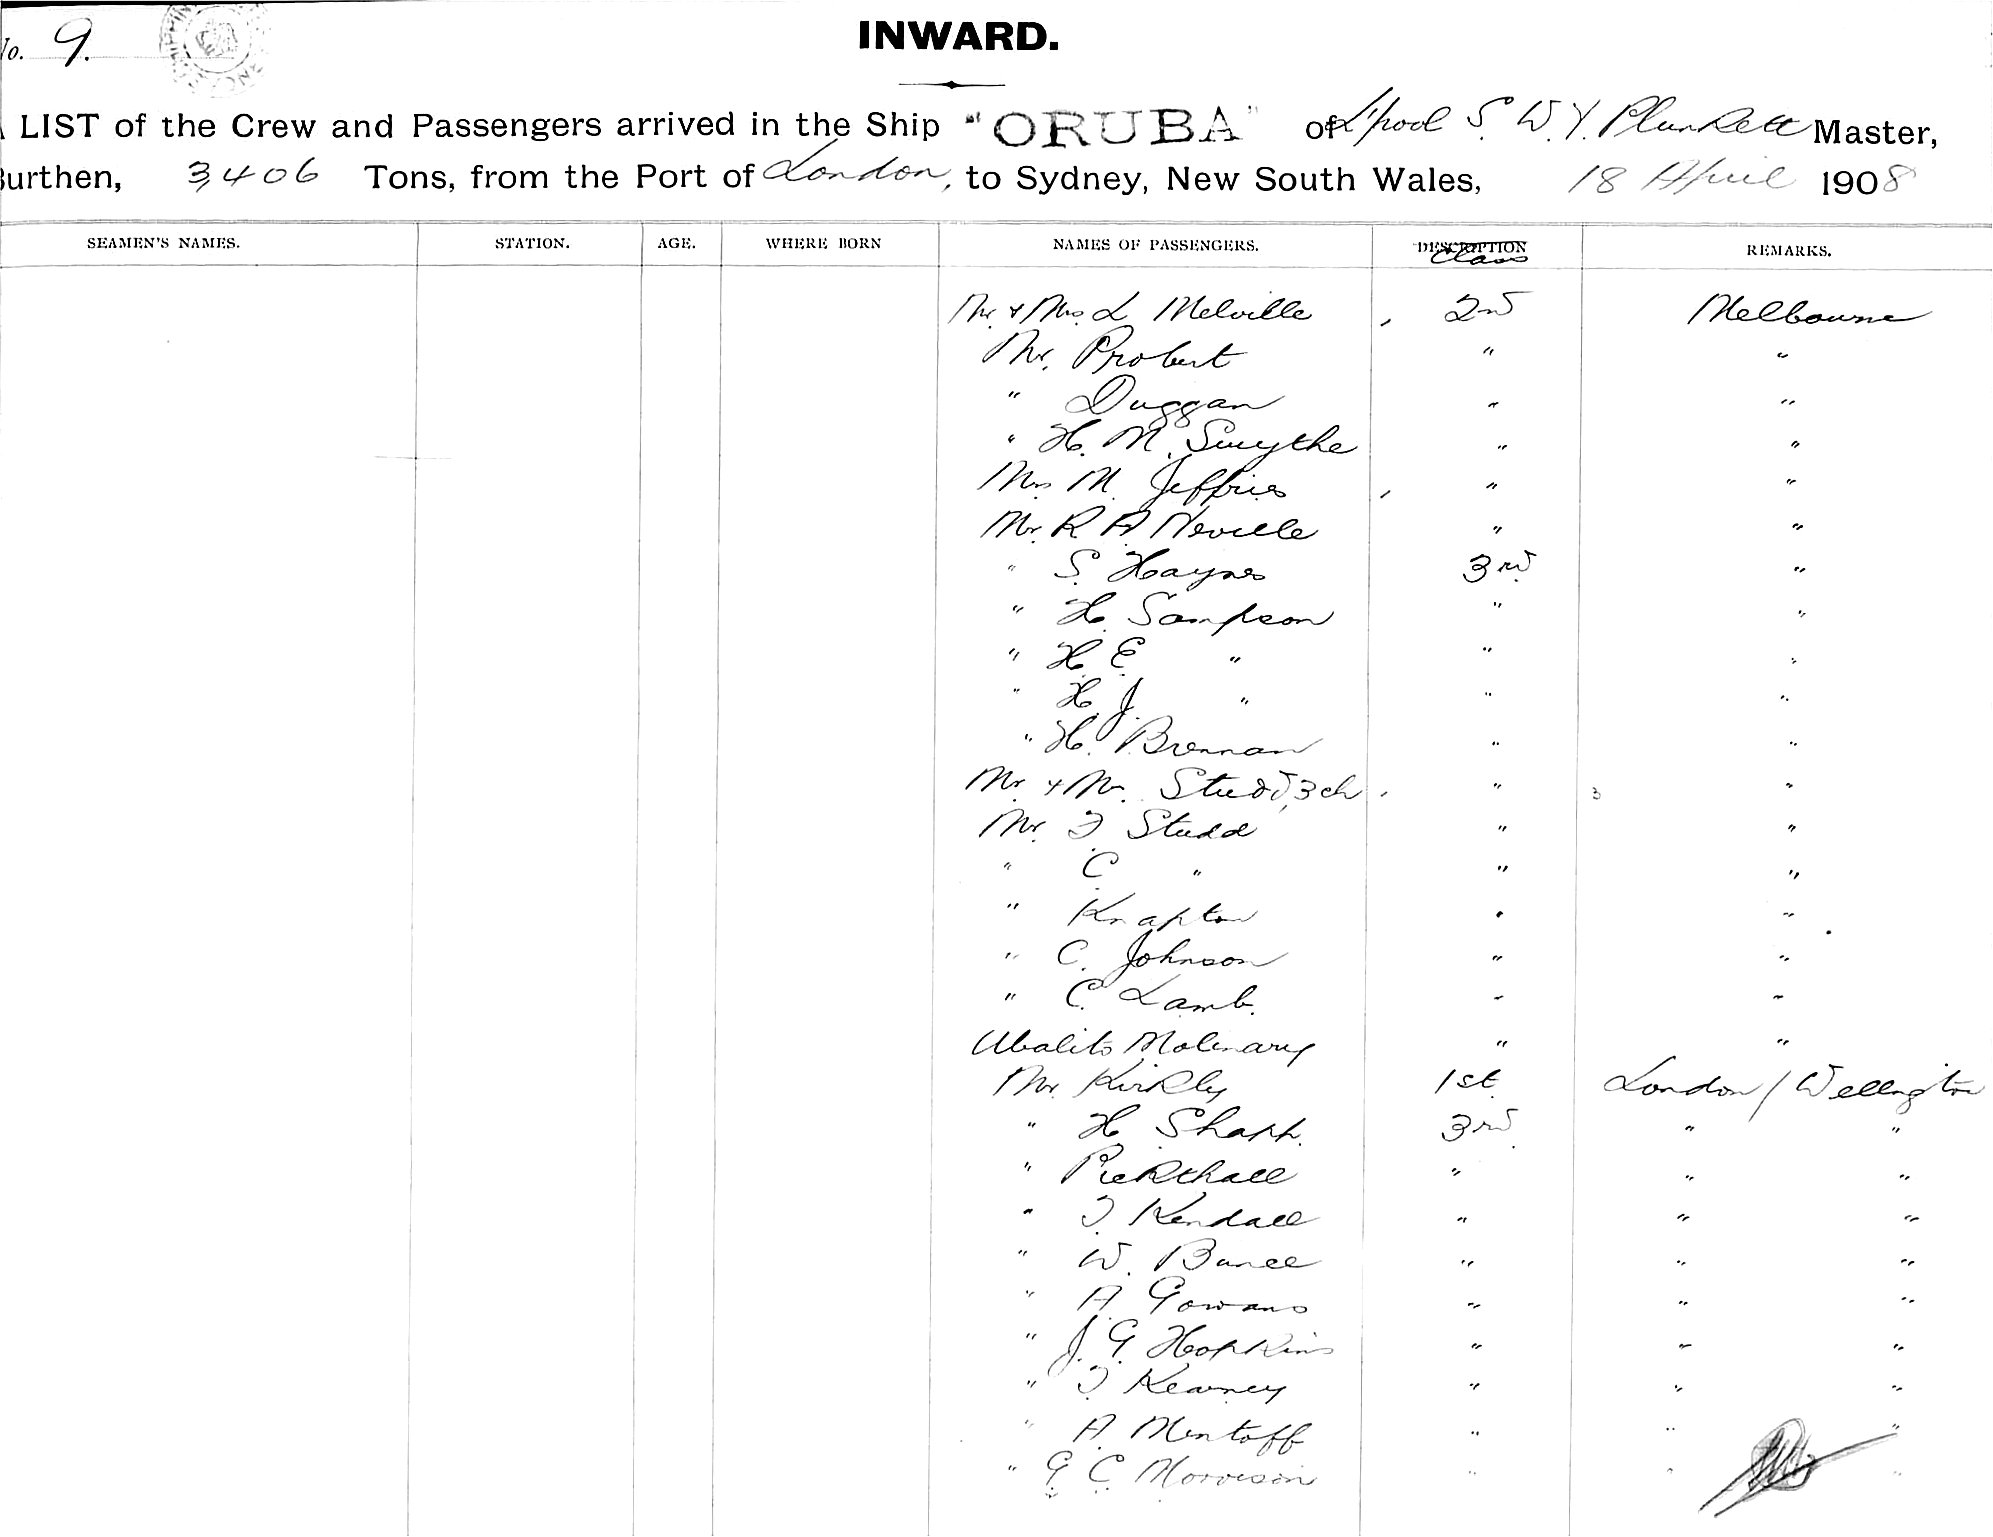 No. 9.
INWARD.
LIST of the Crew and Passengers arrived in the Ship "ORUBA" of L'pool S. W. Y. Plunkett Master,
Burthen, 3,406 Tons, from the Port of London, to Sydney, New South Wales, 18 April 1908
SEAMEN'S NAMES. STATION. AGE. WHERE BORN NAMES OF PASSENGERS. DESCRIPTION REMARKS.
Class
Mr. & Mrs. L Melville 2nd Melbourne
Mr. Probert " "
" Duggan " "
" H. M. Smythe " "
Mrs M. Jeffries " "
Mr. R A Neville " "
" S. Haynes 3rd "
" H. Sampson " "
" H. E. " " "
" H. J. " " "
" H. Brennan " "
Mr & Mrs. Studd, 3 ch " 3 "
Mr. F Studd " "
" C. " " "
" Knapton " "
" C. Johnson " "
" C. Lamb. " "
Molinary " "
Mr. Kirkby 1st London / Wellington
" H Shapp. 3rd " "
" Pickthall " " "
" T. Kendall " " "
" W. Bunce " " "
" A. Gowans " " "
" J. G. Hopkins " " "
" T Kearney " " "
" A. Mentoff " " "
" G. C. Morrison " " "